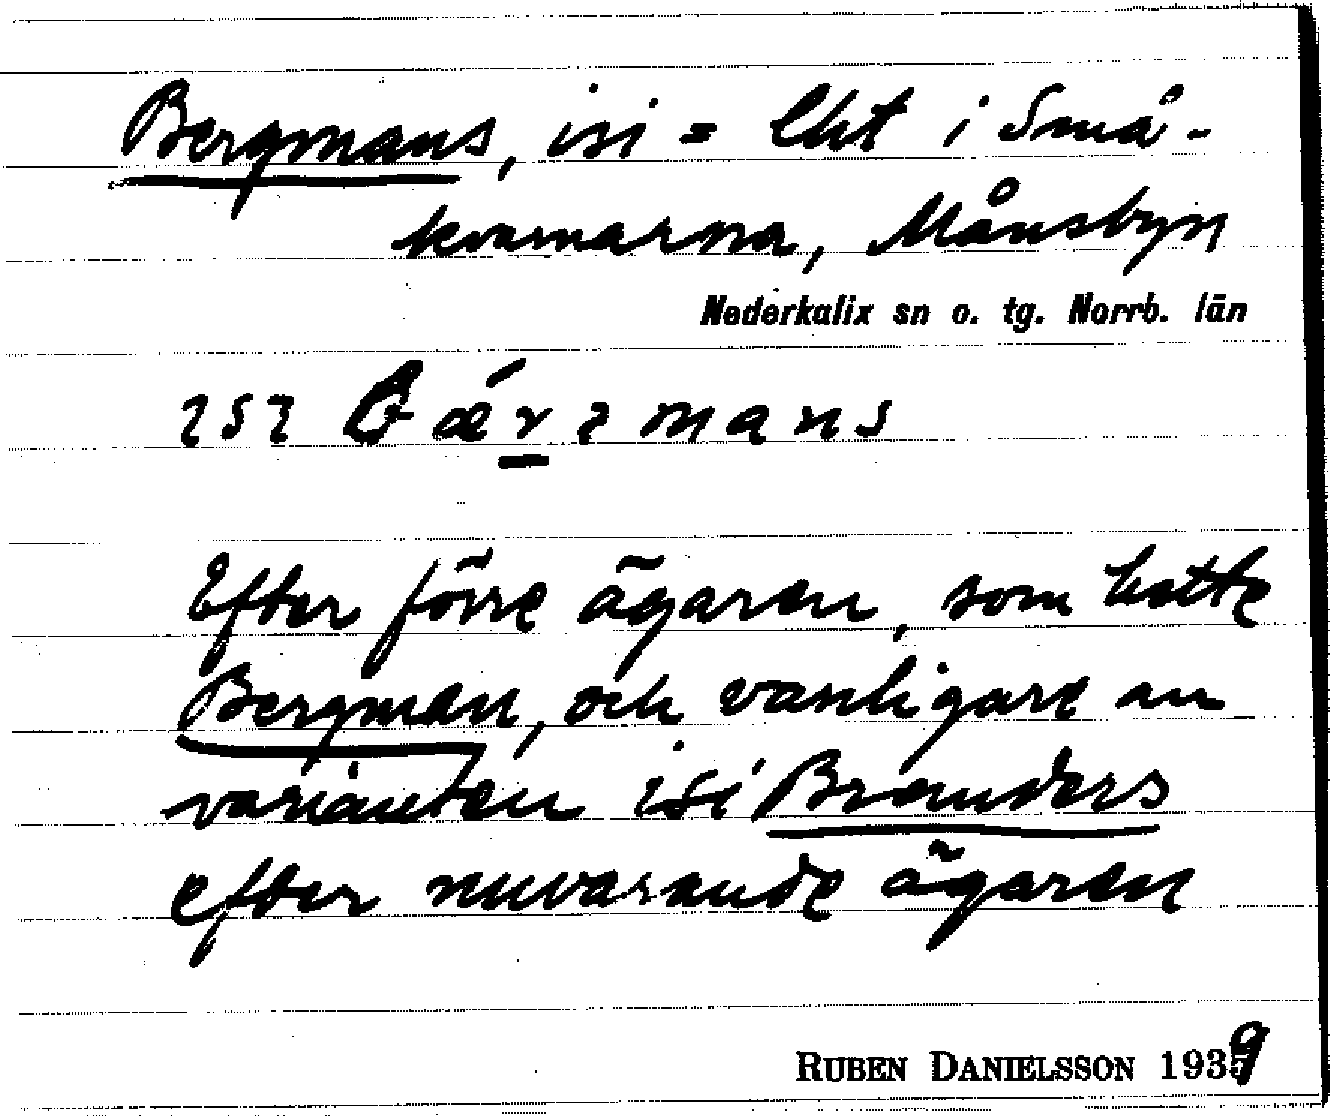 Bergmans, isi = lht i Små-
kvarnarna, Månsbyn
Nederkalix sn o. tg. Norrb. län
ɩsɩ bǽrɩmans
Efter förre ägaren, som hette
Bergman, och vanligare än
varianten isi Branders
efter nuvarande ägaren
RUBEN DANIELSSON 1939